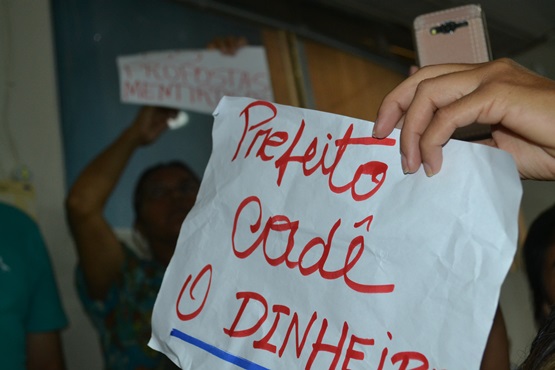 PROPOSTAS
MENTIR
Prefeito
Cadê
O DINHEIR